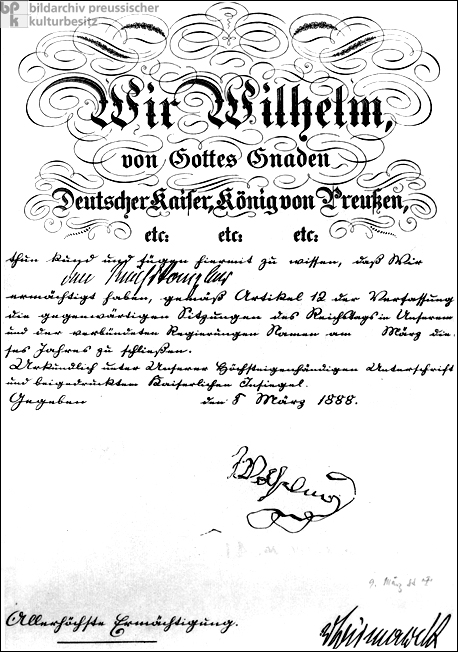 bildarchiv preussischer
kulturbesitz
bpk
Wir Wilhelm,
von Gottes Gnaden
Deutscher Kaiser, König von Preußen,
etc: etc: etc:
thun kund und fügen hiermit zu wissen, daß Wir
den Reichskanzler
ermächtigt haben, gemäß Artikel 12 der Verfassung
die gegenwärtigen Sitzungen des Reichstags in Unserem
und der verbündeten Regierungen Namen am März die-
ses Jahres zu schließen.
Urkundlich unter Unserer Höchsteigenhändigen Unterschrift
und beigedrucktem Kaiserlichen Insiegel.
Gegeben den 8 März 1888.
Wilhelm
9. März 88
Allerhöchste Ermächtigung.
v Bismarck